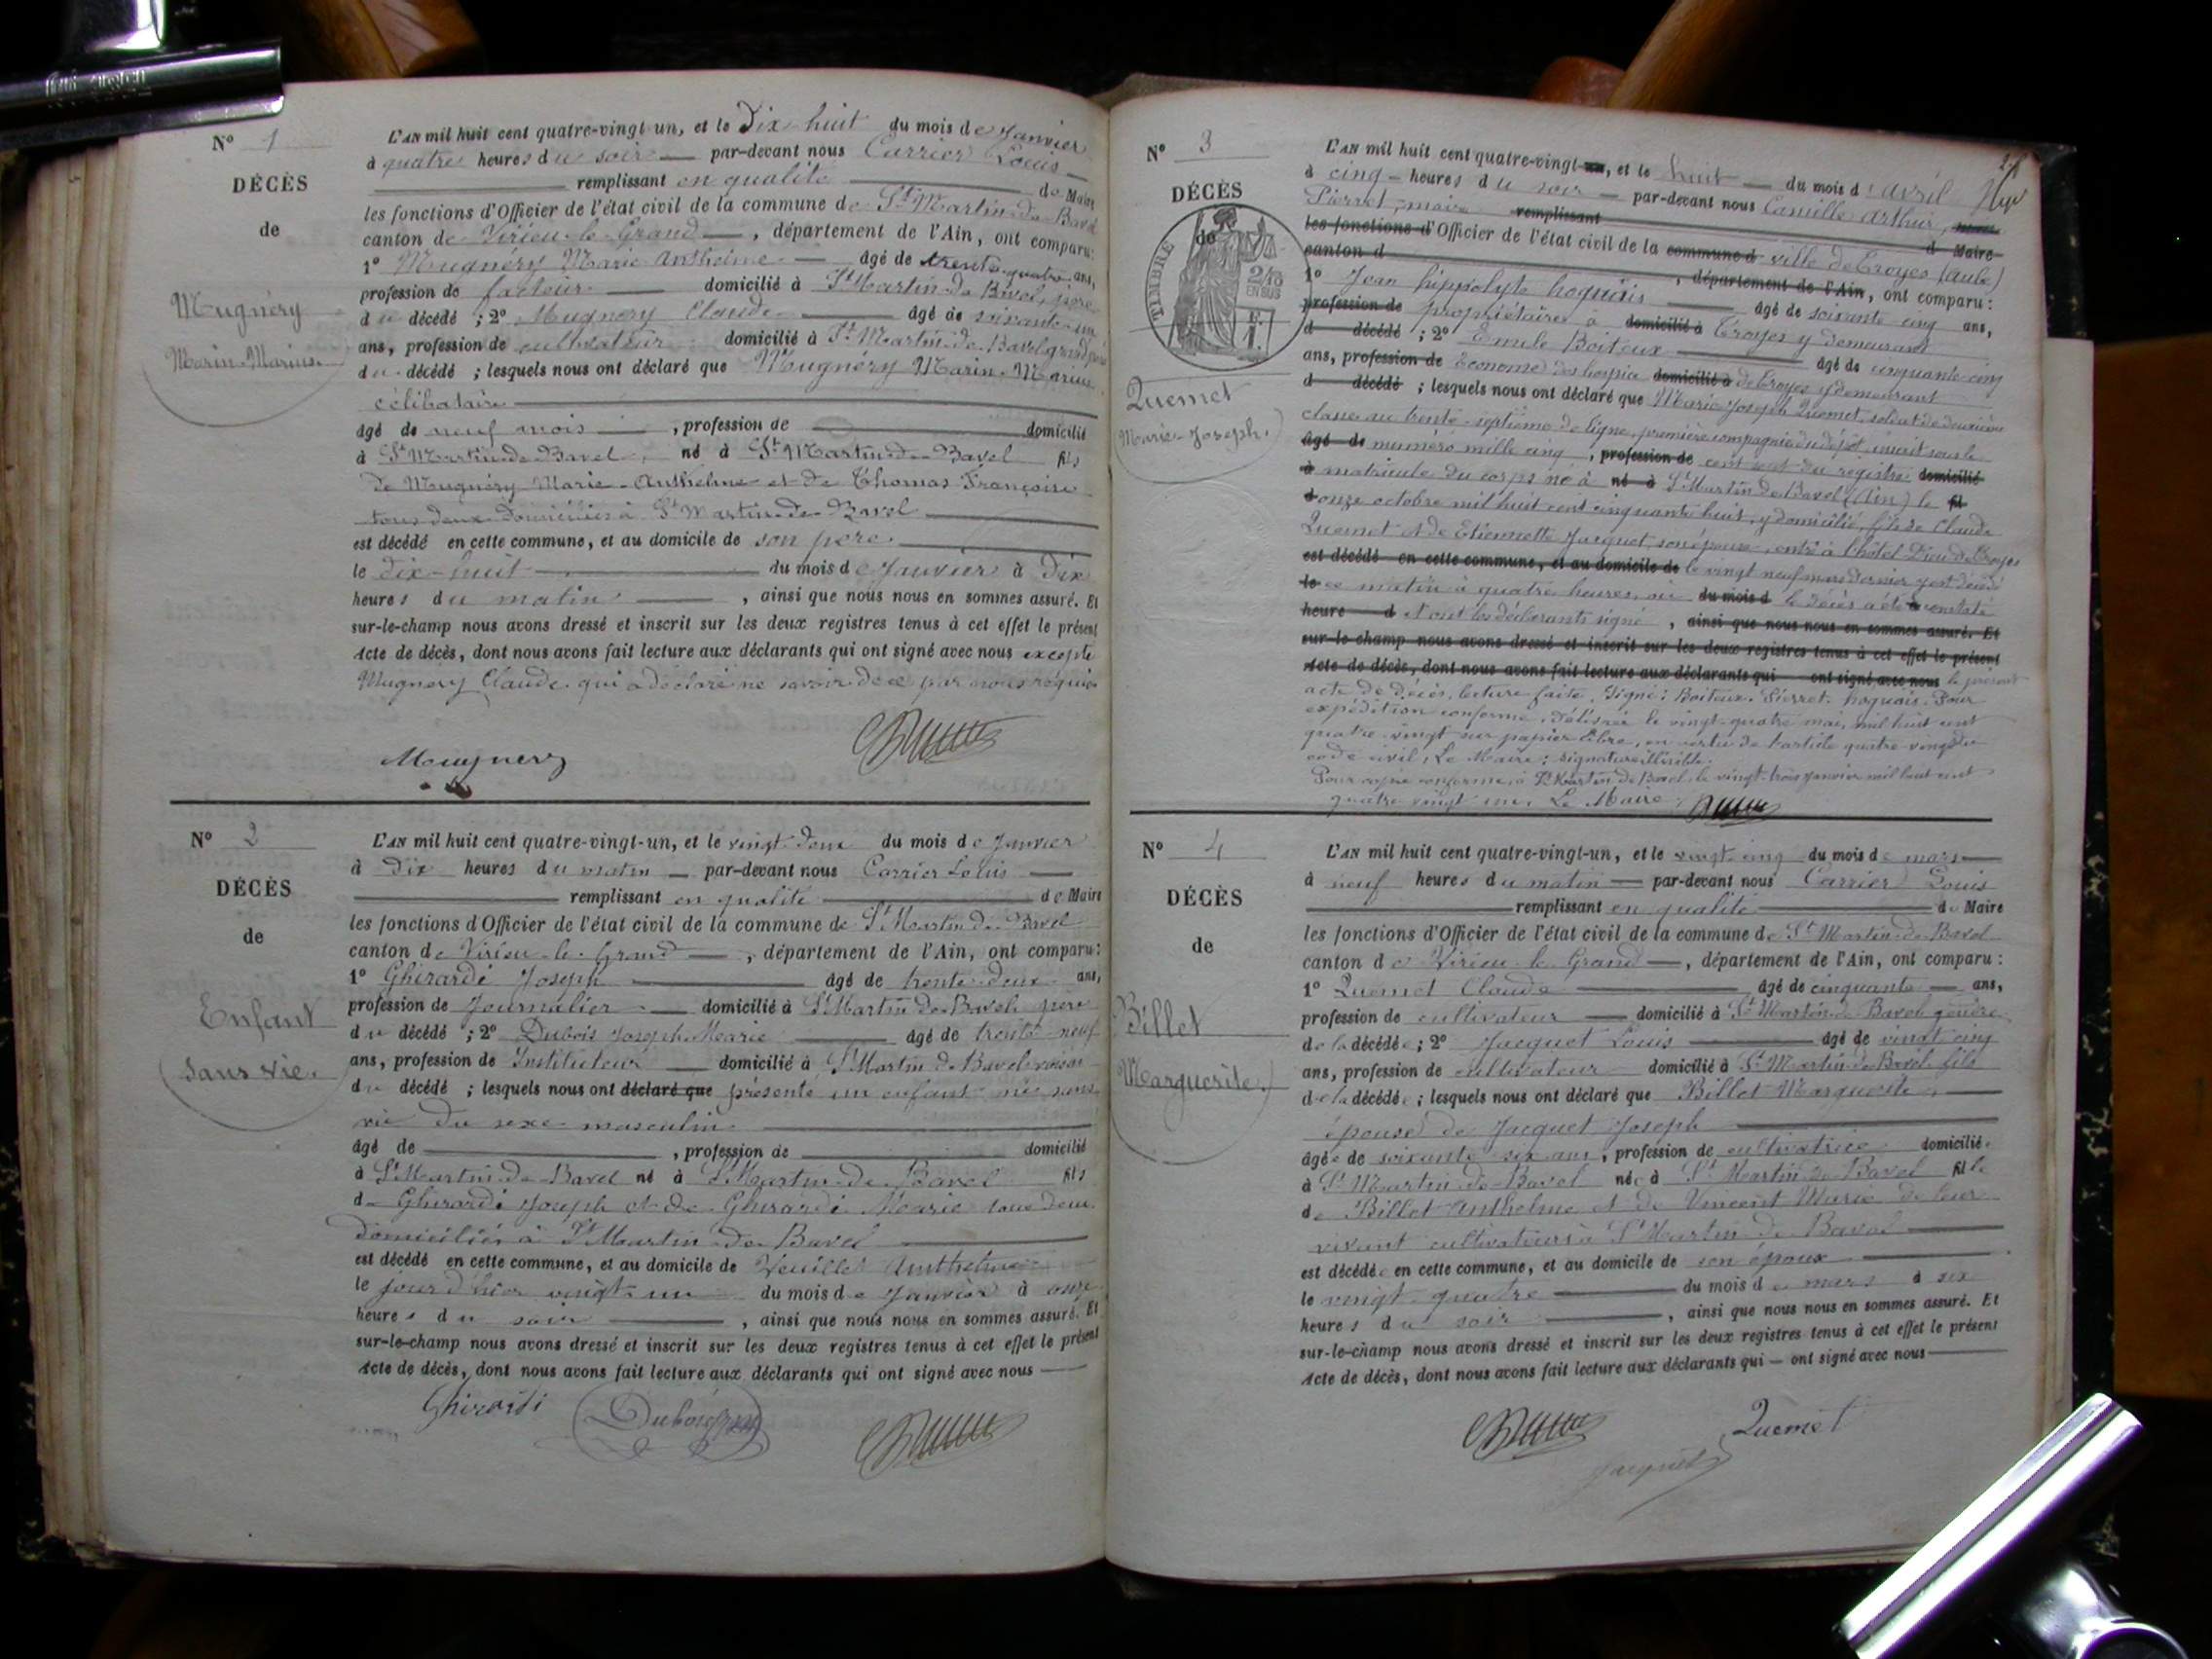 N° 1
DÉCÈS
de
Mugnéry
Marin-Marius.
L'AN mil huit cent quatre-vingt-un, et le Dix-huit du mois de Janvier
à quatre heures du soir par-devant nous Carrier Louis
remplissant en qualité de Maire
les fonctions d'Officier de l'état civil de la commune de St Martin-de-Bavel
canton de Virieu-le-Grand, département de l'Ain, ont comparu:
1° Mugnéry Marie Anthelme âgé de trente-quatre ans,
profession de facteur domicilié à St Martin-de-Bavel, père
du décédé ; 2° Mugnery Claude âgé de soixante-un
ans, profession de cultivateur domicilié à St Martin-de-Bavel grand père
du décédé ; lesquels nous ont déclaré que Mugnéry Marin-Marius
célibataire
âgé de neuf mois, profession de domicilié
à St Martin-de-Bavel, né à St Martin-de-Bavel fils
de Mugnéry Marie-Anthelme et de Thomas Françoise
tous deux domiciliés à St Martin-de-Bavel
est décédé en cette commune, et au domicile de son père
le dix-huit du mois de Janvier à Dix
heures du matin, ainsi que nous nous en sommes assuré. Et
sur-le-champ nous avons dressé et inscrit sur les deux registres tenus à cet effet le présent
Acte de décès, dont nous avons fait lecture aux déclarants qui ont signé avec nous excepté
Mugnery Claude qui a déclaré ne savoir de ce par nous requis
Mugnery
N° 2
DÉCÈS
de
Enfant
sans vie.
L'AN mil huit cent quatre-vingt-un, et le vingt-deux du mois de Janvier
à Dix heures du matin par-devant nous Carrier Louis
remplissant en qualité de Maire
les fonctions d'Officier de l'état civil de la commune de St Martin-de-Bavel
canton de Virieu-le-Grand, département de l'Ain, ont comparu:
1° Ghirardi Joseph âgé de trente-deux ans,
profession de Journalier domicilié à St Martin-de-Bavel père
du décédé ; 2° Dubois Joseph Marie âgé de trente-neuf
ans, profession de Instituteur domicilié à St Martin-de-Bavel voisin
du décédé ; lesquels nous ont déclaré que présenté un enfant né sans
vie du sexe masculin
âgé de , profession de domicilié
à St Martin-de-Bavel né à St Martin-de-Bavel fils
de Ghirardi Joseph et de Ghirardi Marie tous deux
domiciliés à St Martin-de-Bavel
est décédé en cette commune, et au domicile de Anthelme
le jour d'hier vingt-un du mois de Janvier à onze
heures du soir, ainsi que nous nous en sommes assuré. Et
sur-le-champ nous avons dressé et inscrit sur les deux registres tenus à cet effet le présent
Acte de décès, dont nous avons fait lecture aux déclarants qui ont signé avec nous
Ghirardi Dubois
N° 3
DÉCÈS
de
TIMBRE
2/10
EN SUS
F.
1.
Quemet
Marie-Joseph.
L'AN mil huit cent quatre-vingt-un, et le huit du mois d'avril
à cinq heures du soir par-devant nous Camille Arthur,
Pierret, maire remplissant d Maire
les fonctions d'Officier de l'état civil de la commune d ville de Troyes (Aube)
canton d , département de l'Ain, ont comparu:
1° Jean hippolyte hoguais âgé de soixante cinq ans,
profession de propriétaire à domicilié à Troyes y demeurant
d décédé ; 2° Emile Boiteux âgé de cinquante-cinq
ans, profession de Econome des hospices domicilié à de Troyes y demeurant
d décédé ; lesquels nous ont déclaré que Marie Joseph Quemet, soldat de deuxième
classe au trente-septième de ligne, première compagnie du dépôt, inscrit sous le
âgé de numéro mille cinq , profession de cent sept du registre domicilié
à matricule du corps né à né à St Martin de Bavel (Ain) le fil
d onze octobre mil huit cent cinquante huit, y domicilié, fils de Claude
Quemet et de Etiennette Jacquet, son épouse, entré à l'hôtel Dieu de Troyes
est décédé en cette commune, et au domicile de le vingt neuf mars dernier y est décédé
le ce matin à quatre heures, où du mois d le décès a été constaté
heure d Et ont les déclarants signé , ainsi que nous nous en sommes assuré. Et
sur-le-champ nous avons dressé et inscrit sur les deux registres tenus à cet effet le présent
Acte de décès, dont nous avons fait lecture aux déclarants qui ont signé avec nous le présent
acte de décès, lecture faite. Signé: Boiteux. Pierret. hoguais. Pour
expédition conforme, délivrée le vingt-quatre mai, mil huit cent
quatre-vingt sur papier libre, en vertu de l'article quatre-vingt du
code civil, Le Maire: signature illisible.
Pour copie conforme, à St Martin de Bavel, le vingt-trois janvier mil huit cent
quatre vingt un. Le Maire,
N° 4
DÉCÈS
de
Billet
Marguerite.
L'AN mil huit cent quatre-vingt-un, et le vingt-cinq du mois de mars
à neuf heures du matin par-devant nous Carrier Louis
remplissant en qualité de Maire
les fonctions d'Officier de l'état civil de la commune de St Martin-de-Bavel
canton de Virieu-le-Grand, département de l'Ain, ont comparu:
1° Quemet Claude âgé de cinquante ans,
profession de cultivateur domicilié à St Martin-de-Bavel gendre
de la décédée ; 2° Jacquet Louis âgé de vingt cinq
ans, profession de cultivateur domicilié à St Martin-de-Bavel fils
de la décédée ; lesquels nous ont déclaré que Billet Marguerite,
épouse de Jacquet Joseph
âgée de soixante six ans, profession de cultivatrice domiciliée
à St Martin-de-Bavel née à St Martin-de-Bavel fille
de Billet Anthelme et de Vincent Marie de leur
vivant cultivateurs à St Martin-de-Bavel
est décédée en cette commune, et au domicile de son époux
le vingt-quatre du mois de mars à six
heures du soir, ainsi que nous nous en sommes assuré. Et
sur-le-champ nous avons dressé et inscrit sur les deux registres tenus à cet effet le présent
Acte de décès, dont nous avons fait lecture aux déclarants qui ont signé avec nous
Quemet
Jacquet